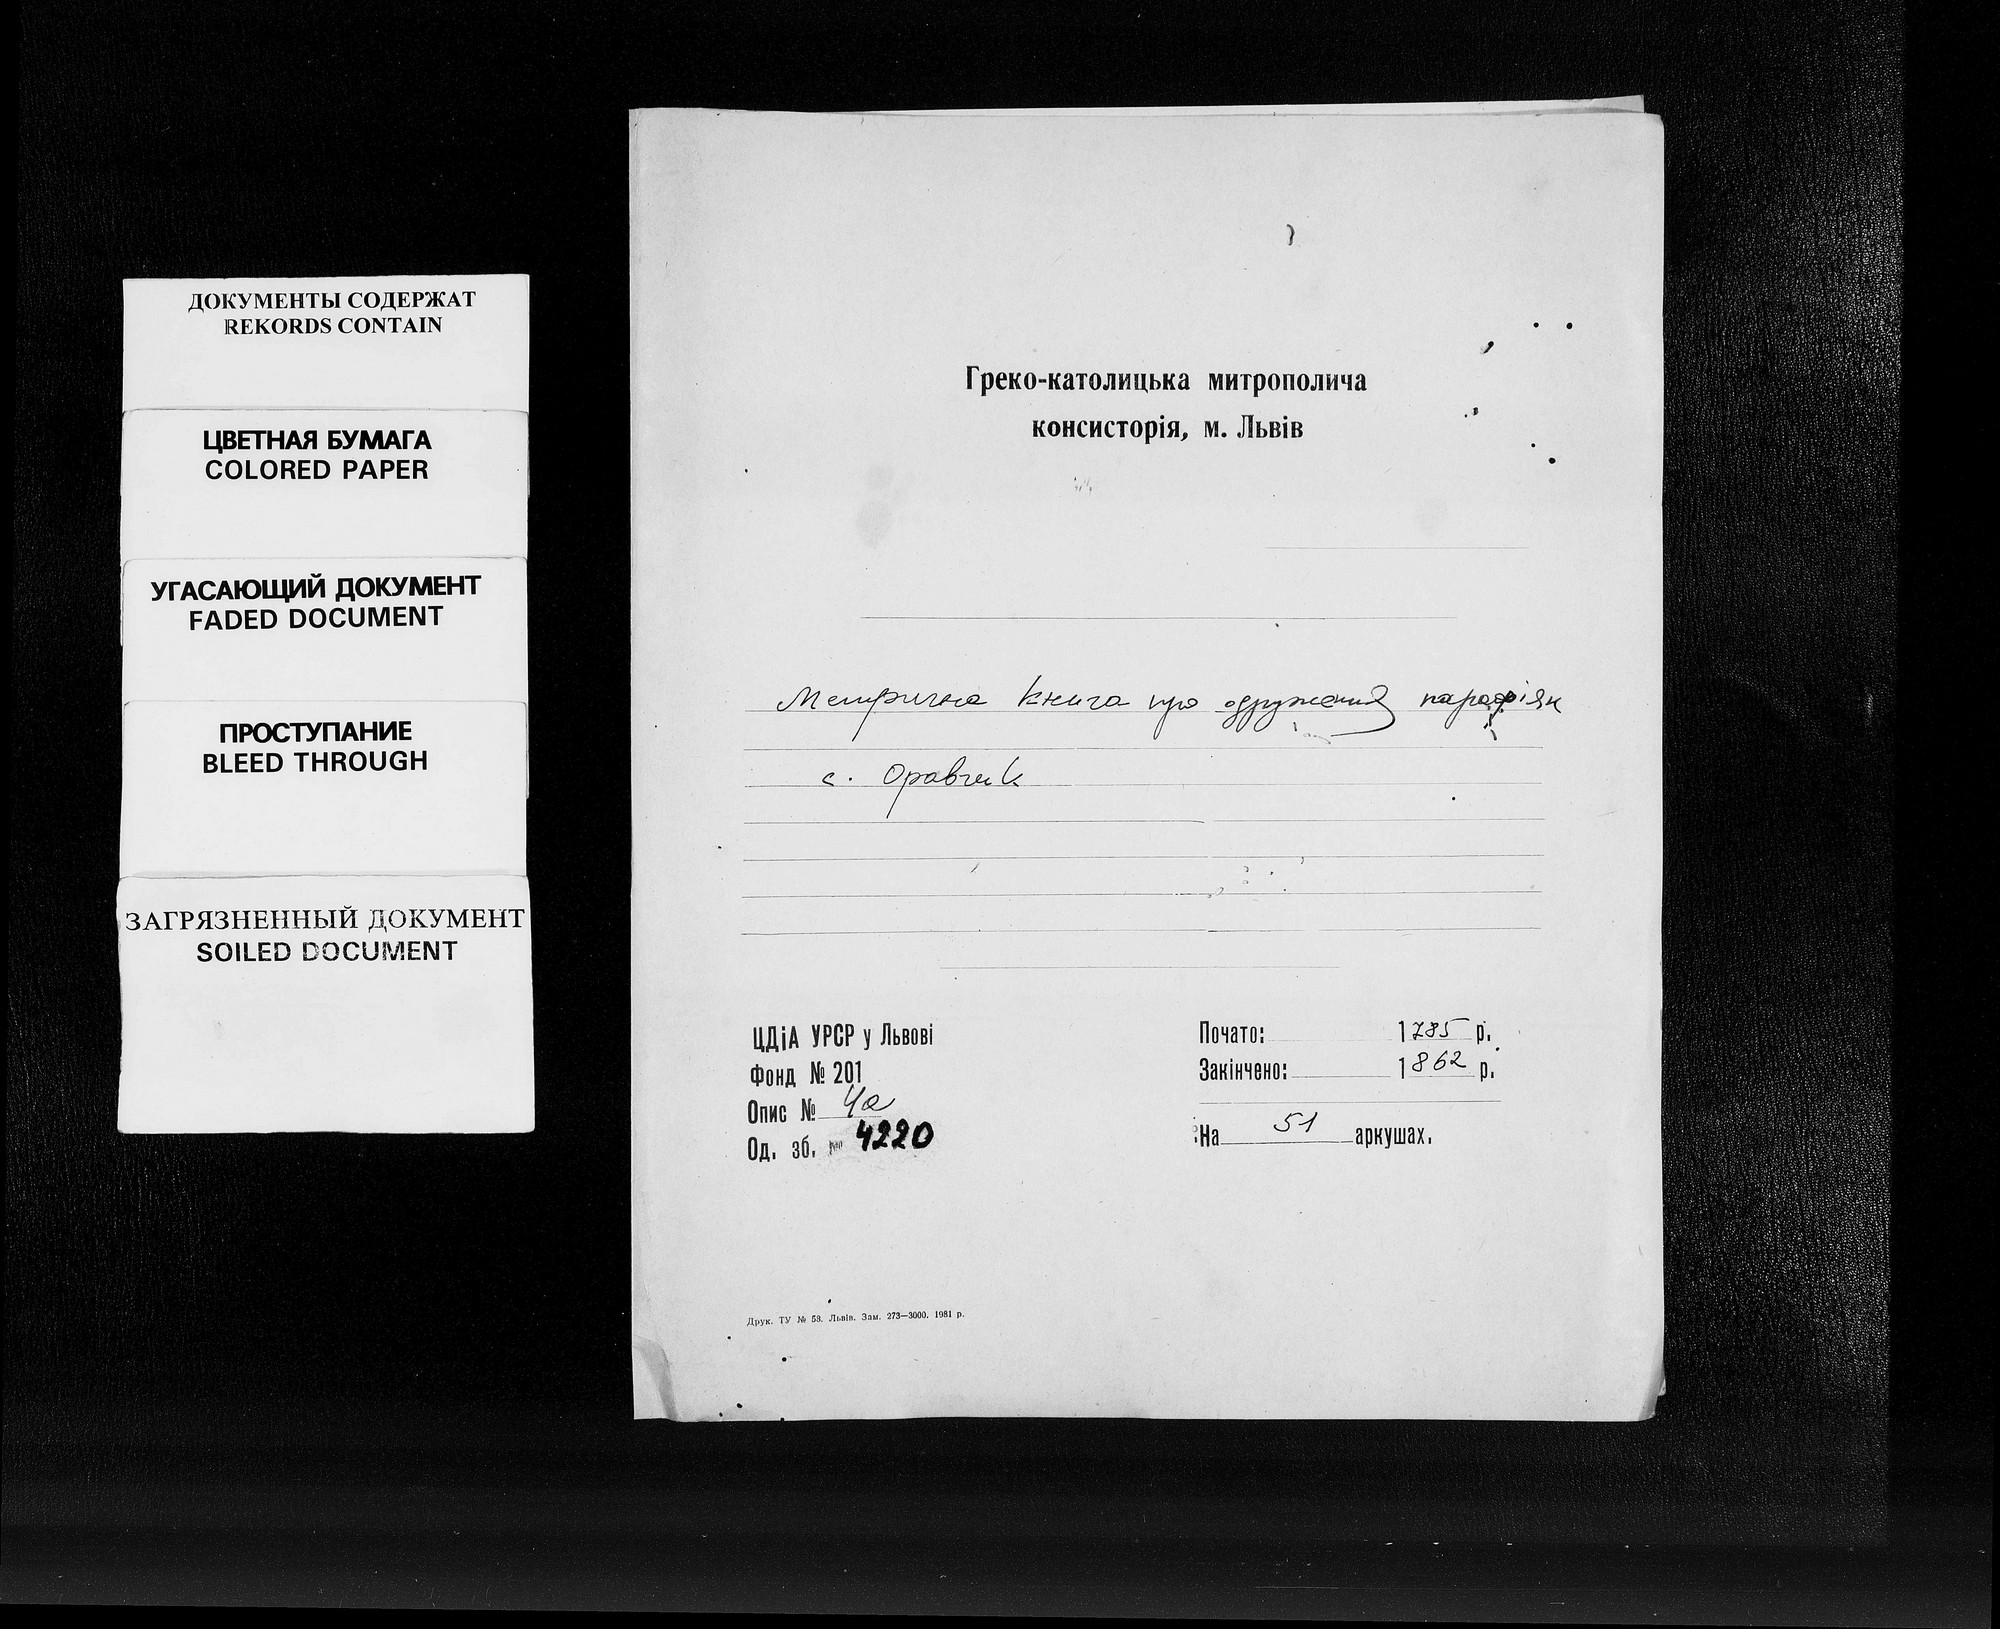 ДОКУМЕНТЫ СОДЕРЖАТ
REKORDS CONTAIN
ЦВЕТНАЯ БУМАГА
COLORED PAPER
УГАСАЮЩИЙ ДОКУМЕНТ
FADED DOCUMENT
ПРОСТУПАНИЕ
BLEED THROUGH
ЗАГРЯЗНЕННЫЙ ДОКУМЕНТ
SOILED DOCUMENT
Греко-католицька митрополича
консисторія, м. Львів
Метрична книга про одруження парафіян
с. Оравчик
ЦДіА УРСР у Львові
Фонд № 201
Опис № 4а
Од. зб. № 4220
Почато: 1785 р.
Закінчено: 1862 р.
На 51 аркушах.
Друк. ТУ № 58. Львів. Зам. 273—3000. 1981 р.